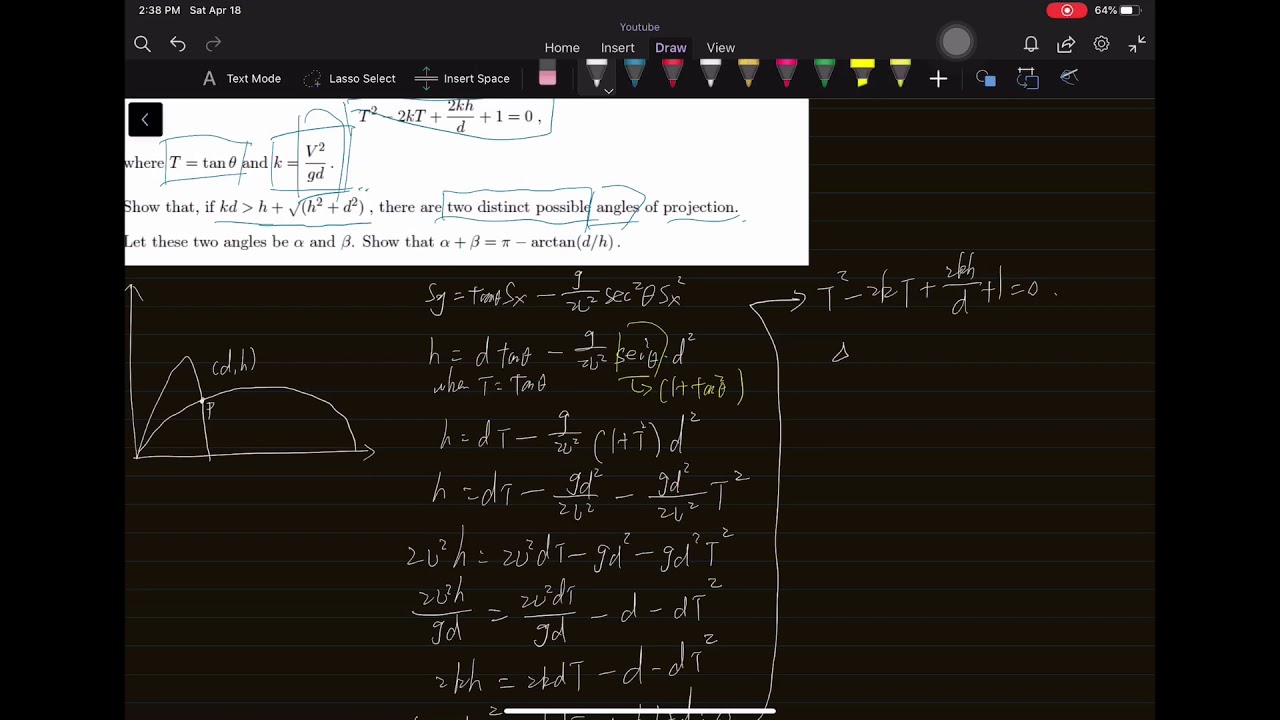 2:38 PM Sat Apr 18
64%
Youtube
Home Insert Draw View
Text Mode Lasso Select Insert Space
T² - 2kT + 2kh/d + 1 = 0 ,
where T = tan θ and k = V²/gd .
Show that, if kd > h + √(h² + d²) , there are two distinct possible angles of projection.
Let these two angles be α and β. Show that α + β = π − arctan(d/h) .
(d,h)
P
Sy = tanθ Sx − g/2v² sec²θ Sx²
h = d tanθ − g/2v² sec²θ · d²
when T = tanθ
↳ (1+tan²θ)
h = dT − g/2v² (1+T²) d²
h = dT − gd²/2v² − gd²/2v² T²
2v²h = 2v²dT − gd² − gd²T²
2v²h/gd = 2v²dT/gd − d − dT²
2kh = 2kdT − d − dT²
→ T² − 2kT + 2kh/d + 1 = 0 .
Δ